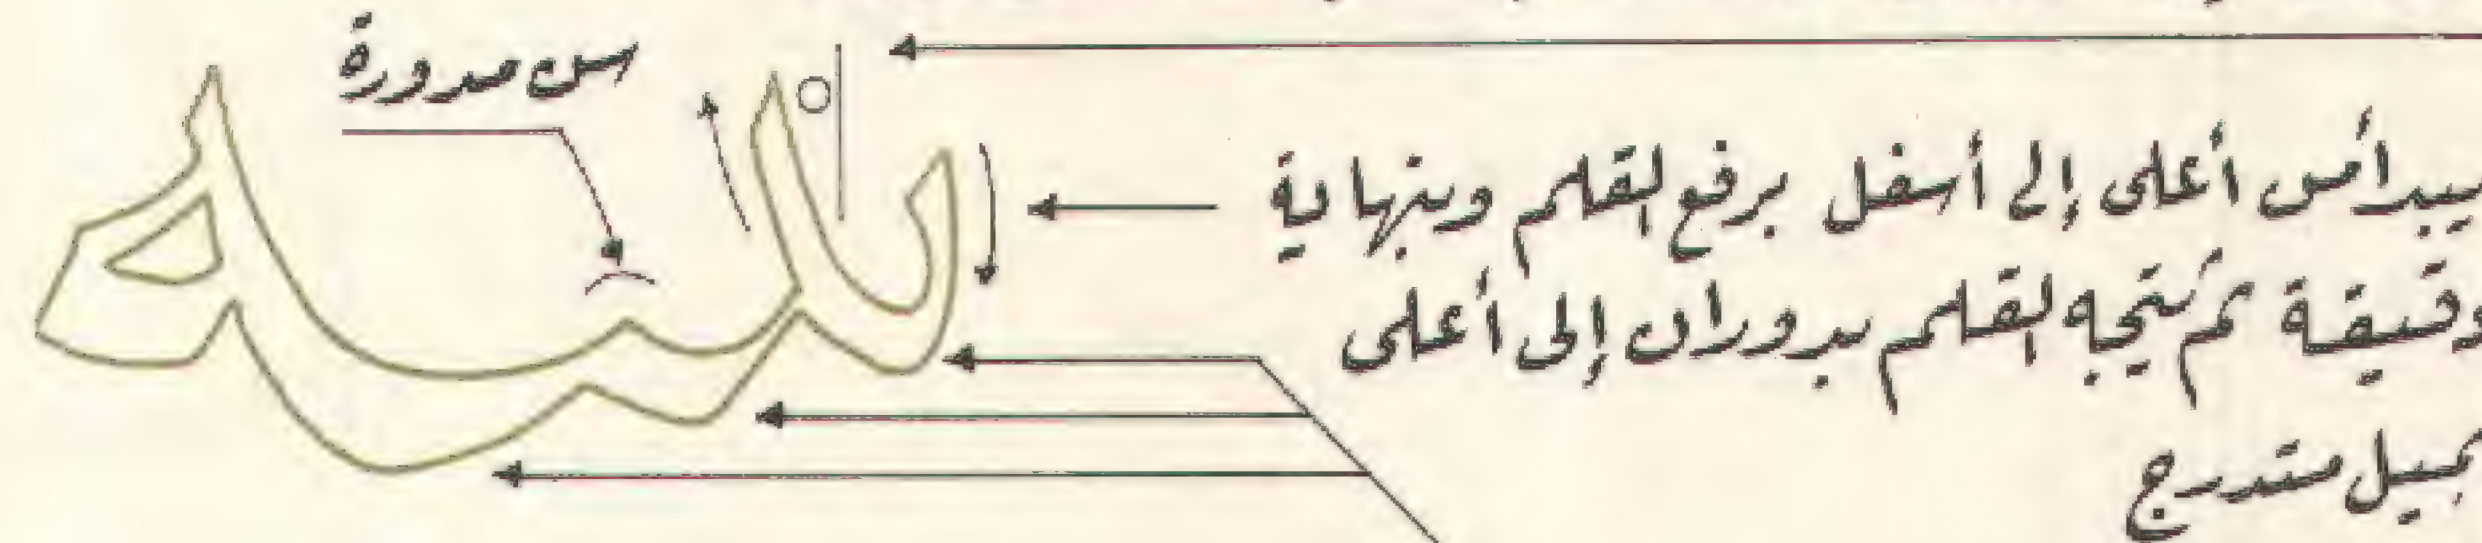 سن مدورة
يبدأ من أعلى إلى أسفل برفع القلم وبنهاية
دقيقة ثم يتجه القلم بدوران إلى أعلى
بميل متدرج